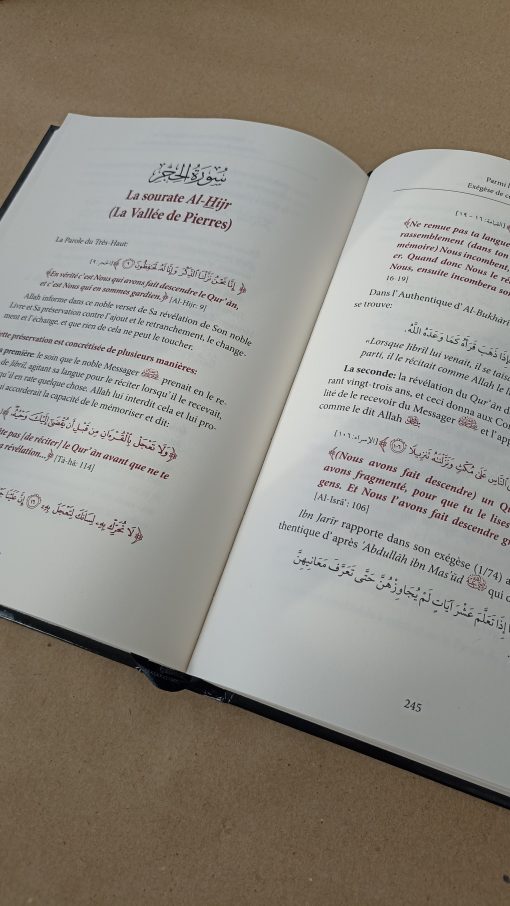 سُورَةُ الحِجْر
La sourate Al-Hijr
(La Vallée de Pierres)
La Parole du Très-Haut:
﴿ إِنَّا نَحْنُ نَزَّلْنَا ٱلذِّكْرَ وَإِنَّا لَهُۥ لَحَٰفِظُونَ ٩ ﴾ [الحجر: ٩]
«En vérité c'est Nous qui avons fait descendre le Qur'ân,
et c'est Nous qui en sommes gardien.» [Al-Hijr: 9]
Allah informe dans ce noble verset de Sa révélation de Son noble
Livre et Sa préservation contre l'ajout et le retranchement, le change-
ment et l'échange, et que rien de cela ne peut le toucher.
préservation est concrétisée de plusieurs manières:
première: le soin que le noble Messager ﷺ prenait en le re
de Jibril, agitant sa langue pour le réciter lorsqu'il le recevait,
qu'il en rate quelque chose. Allah lui interdit cela et lui pro-
accorderait la capacité de mémoriser et dit:
﴿ وَلَا تَعْجَلْ بِٱلْقُرْءَانِ مِن قَبْلِ أَن يُقْضَىٰٓ إِلَيْكَ وَحْيُهُۥ ﴾
te pas [de réciter] le Qur'ân avant que ne te
a révélation...» [Tâ-hâ: 114]
﴿ لَا تُحَرِّكْ بِهِۦ لِسَانَكَ لِتَعْجَلَ بِهِۦٓ ١٦ إِنَّ عَلَيْنَا
Parmi
Exégèse de
[القيامة: ١٦ - ١٩]
«Ne remue pas ta langue
rassemblement (dans ton
mémoire) Nous incombent,
er. Quand donc Nous le ré
Nous, ensuite incombera son
16-19]
Dans l'Authentique d'Al-Bukhâri
se trouve:
فَإِذَا ذَهَبَ قَرَأَهُ كَمَا وَعَدَهُ اللَّهُ.
«Lorsque Jibril lui venait, il se taisa
parti, il le récitait comme Allah le l
La seconde: la révélation du Qur'ân d
rant vingt-trois ans, et ceci donna aux Com
lité de le recevoir du Messager ﷺ et l'app
comme le dit Allah
النَّاسِ عَلَىٰ مُكْثٍ وَنَزَّلْنَٰهُ تَنزِيلًا ١٠٦ ﴾ [الإسراء: ١٠٦]
«(Nous avons fait descendre) un Qu
avons fragmenté, pour que tu le lises
gens. Et Nous l'avons fait descendre gr
[Al-Isrâ': 106]
Ibn Jarîr rapporte dans son exégèse (1/74) a
thentique d'après 'Abdullâh ibn Mas'ûd qui d
إِذَا تَعَلَّمَ عَشْرَ آيَاتٍ لَمْ يُجَاوِزْهُنَّ حَتَّى تَعَرَّفَ مَعَانِيَهُنَّ
245